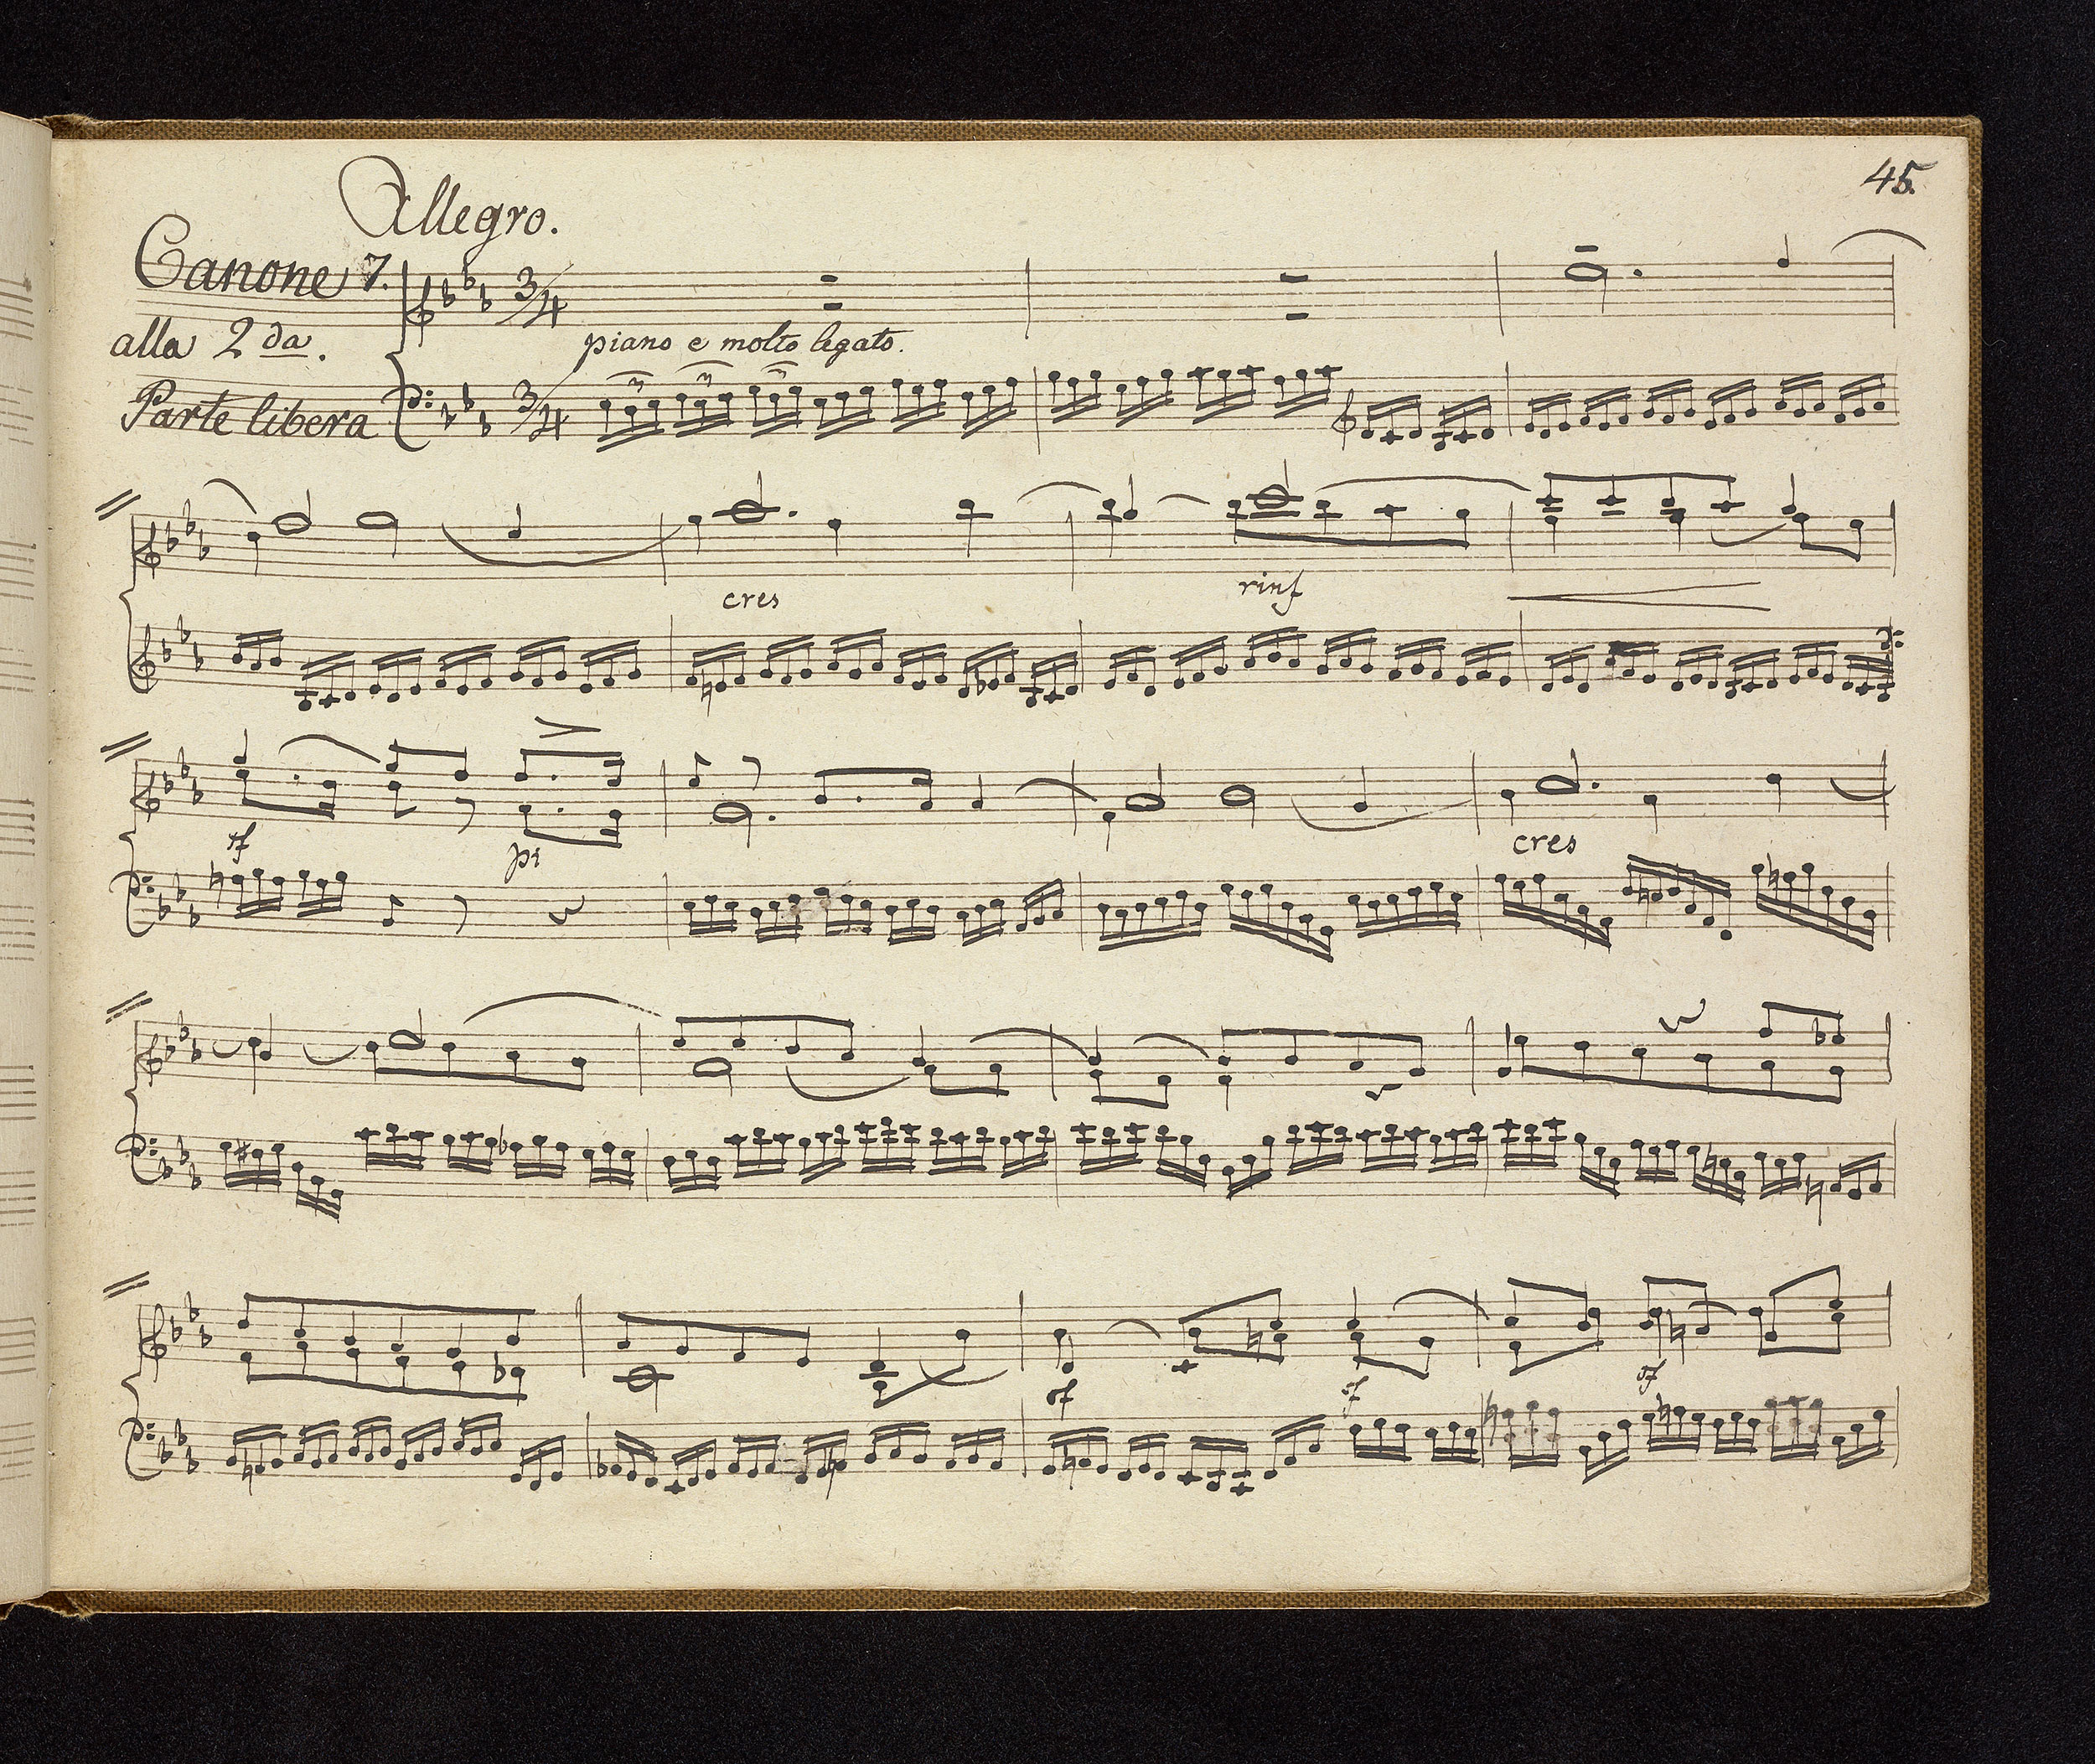 45.
Allegro.
Canone 7.
3/4
alla 2 da.
piano e molto legato.
Parte libera
3/4
3 3 3
cres
rinf
sf
pi
cres
sf
sf
sf